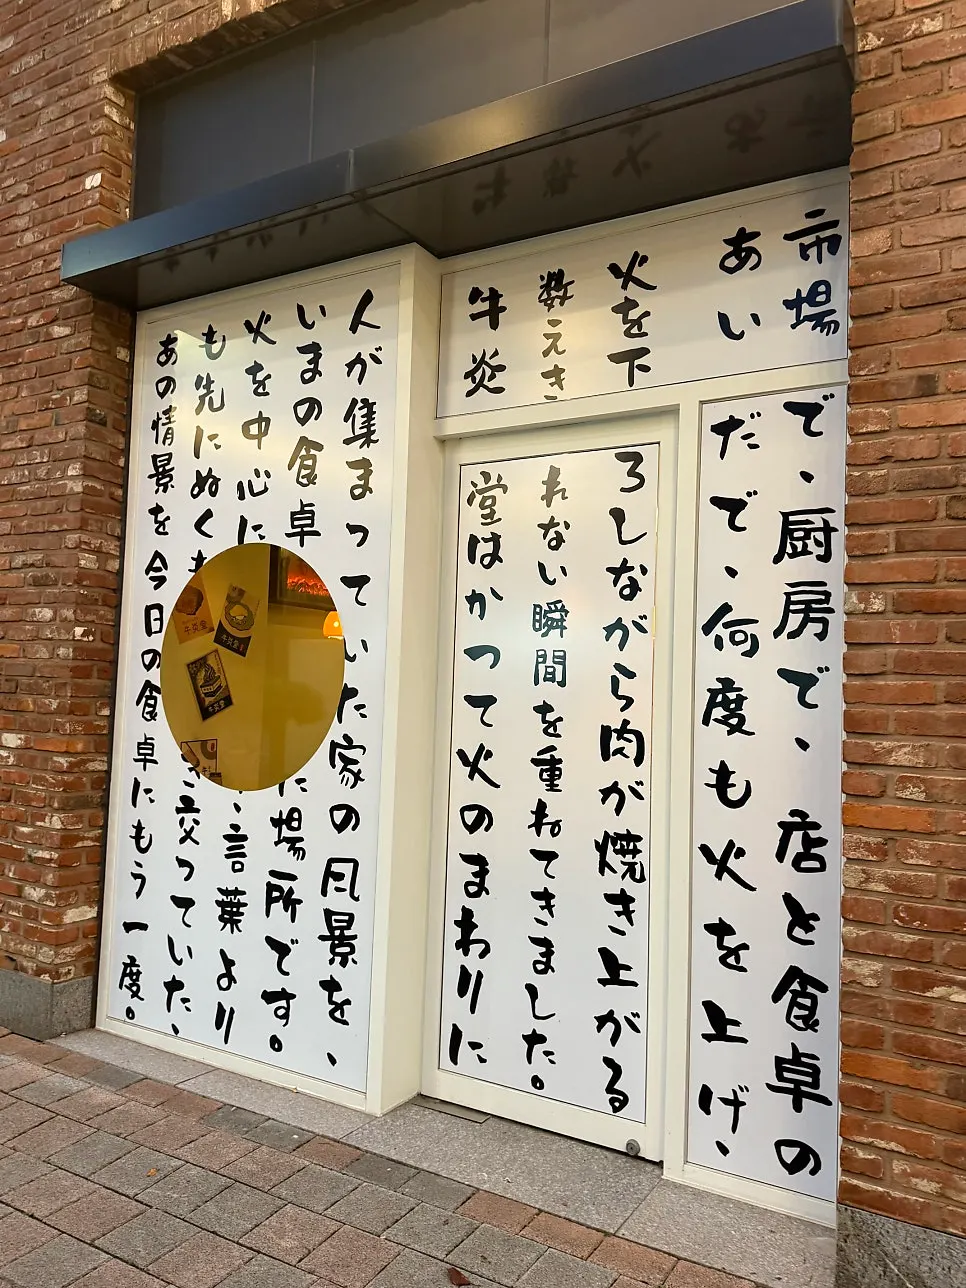 市場で、厨房で、店と食卓の
あいだで、何度も火を上げ、
火を下ろしながら肉が焼き上がる
数えきれない瞬間を重ねてきました。
牛炎堂はかつて火のまわりに
人が集まっていた家の風景を、
いまの食卓に場所です。
火を中心に、言葉より
も先にぬくもき交っていた、
あの情景を今日の食卓にもう一度。
牛炎堂
牛炎堂
牛炎堂